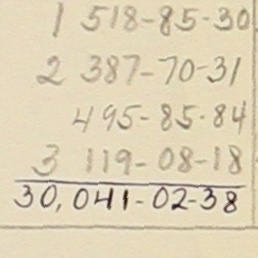 1 518-85-30
2 387-70-31
495-85-84
3 119-08-18
30,041-02-38